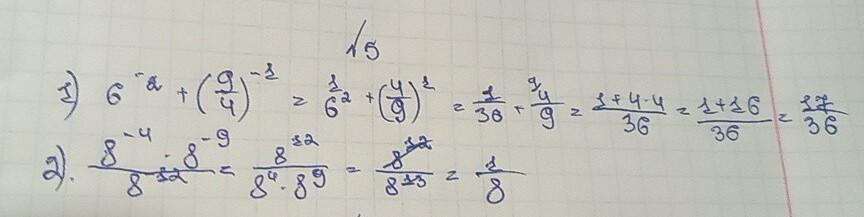 №5
1) 6^{-2} + (9/4)^{-1} = 1/6^2 + (4/9)^1 = 1/36 + ^{4}4/9 = (1+4·4)/36 = (1+16)/36 = 17/36
2). (8^{-4} · 8^{-9})/8^{-12} = 8^{12}/(8^4 · 8^9) = 8^{12}/8^{13} = 1/8